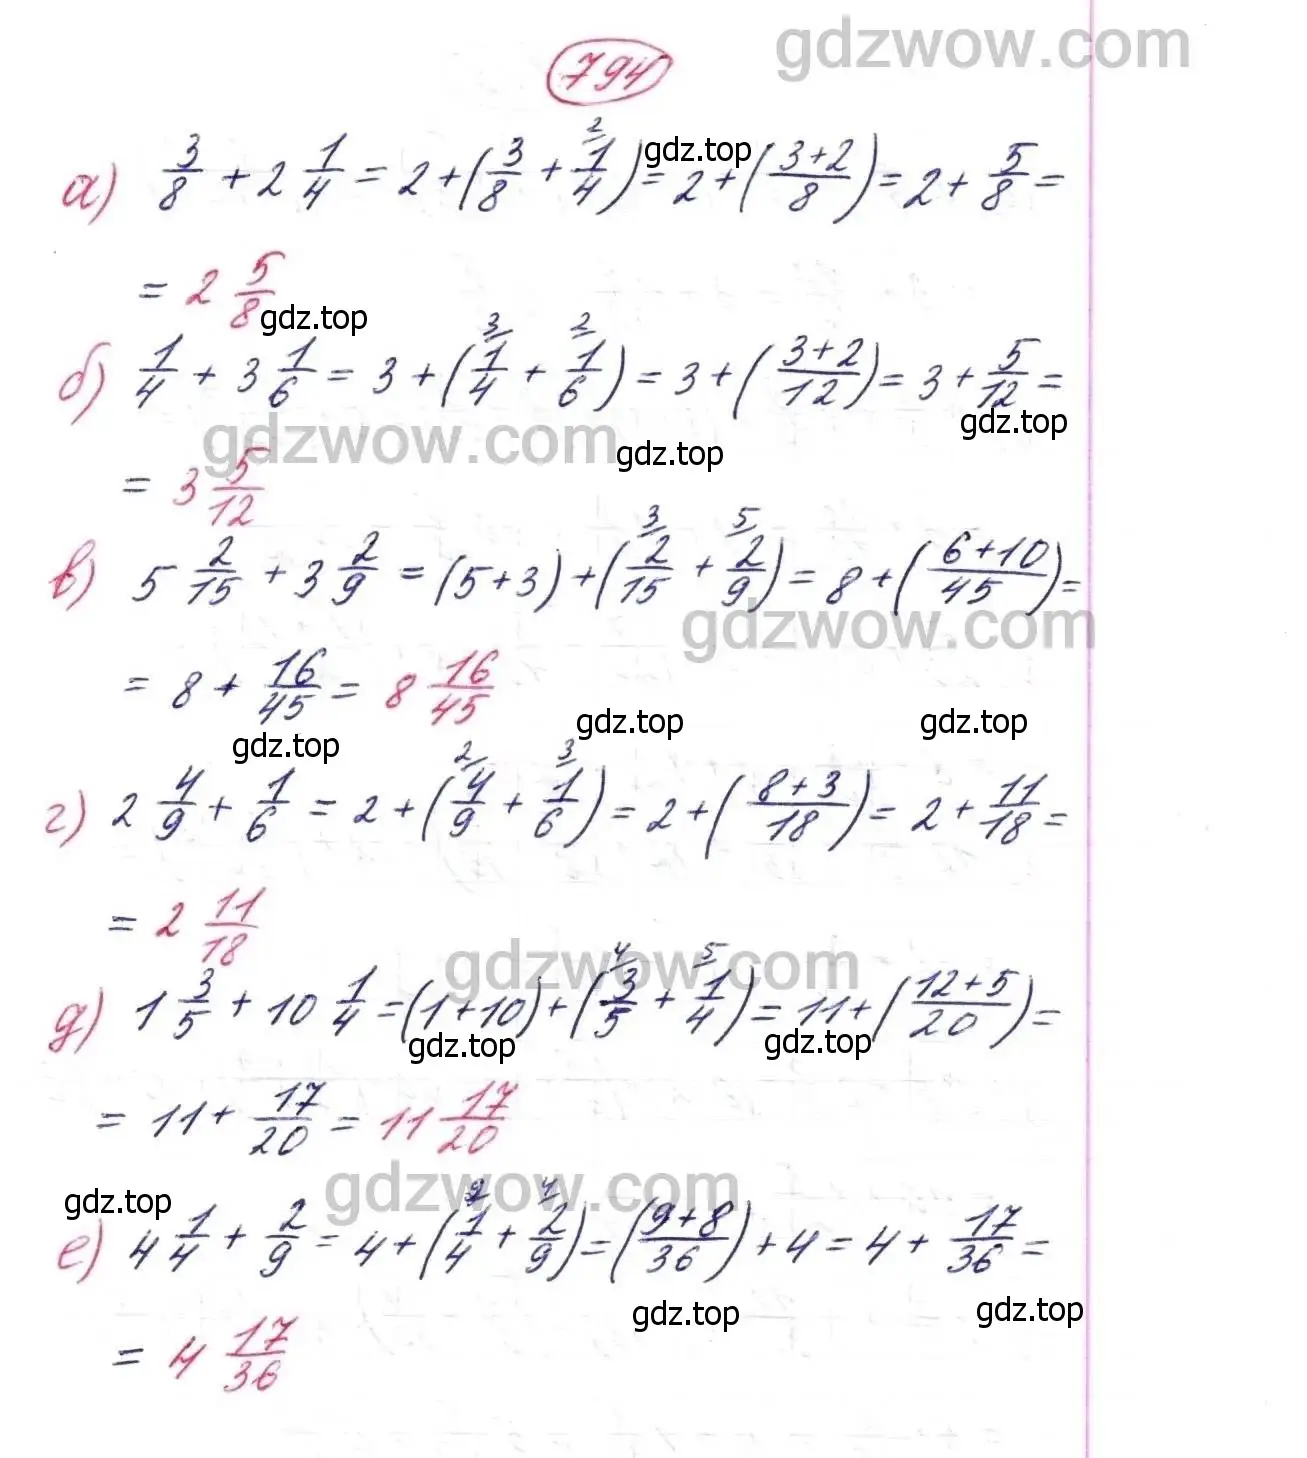 gdzwow.com
794
а) 3/8 + 2 1/4 = 2 + (3/8 + 1/4 ²) = 2 + ((3+2)/8) = 2 + 5/8 =
gdz.top
= 2 5/8
gdz.top
б) 1/4 + 3 1/6 = 3 + (1/4 ³ + 1/6 ²) = 3 + ((3+2)/12) = 3 + 5/12 =
gdz.top
gdzwow.com
gdz.top
= 3 5/12
в) 5 2/15 + 3 2/9 = (5+3) + (2/15 ³ + 2/9 ⁵) = 8 + ((6+10)/45) =
gdzwow.com
= 8 + 16/45 = 8 16/45
gdz.top gdz.top gdz.top
г) 2 4/9 + 1/6 = 2 + (4/9 ² + 1/6 ³) = 2 + ((8+3)/18) = 2 + 11/18 =
= 2 11/18
gdzwow.com
д) 1 3/5 + 10 1/4 = (1+10) + (3/5 ⁴ + 1/4 ⁵) = 11 + ((12+5)/20) =
gdz.top gdz.top
= 11 + 17/20 = 11 17/20
gdzwow.com
gdz.top
е) 4 1/4 + 2/9 = 4 + (1/4 ⁹ + 2/9 ⁴) = ((9+8)/36) + 4 = 4 + 17/36 =
gdz.top gdz.top
= 4 17/36